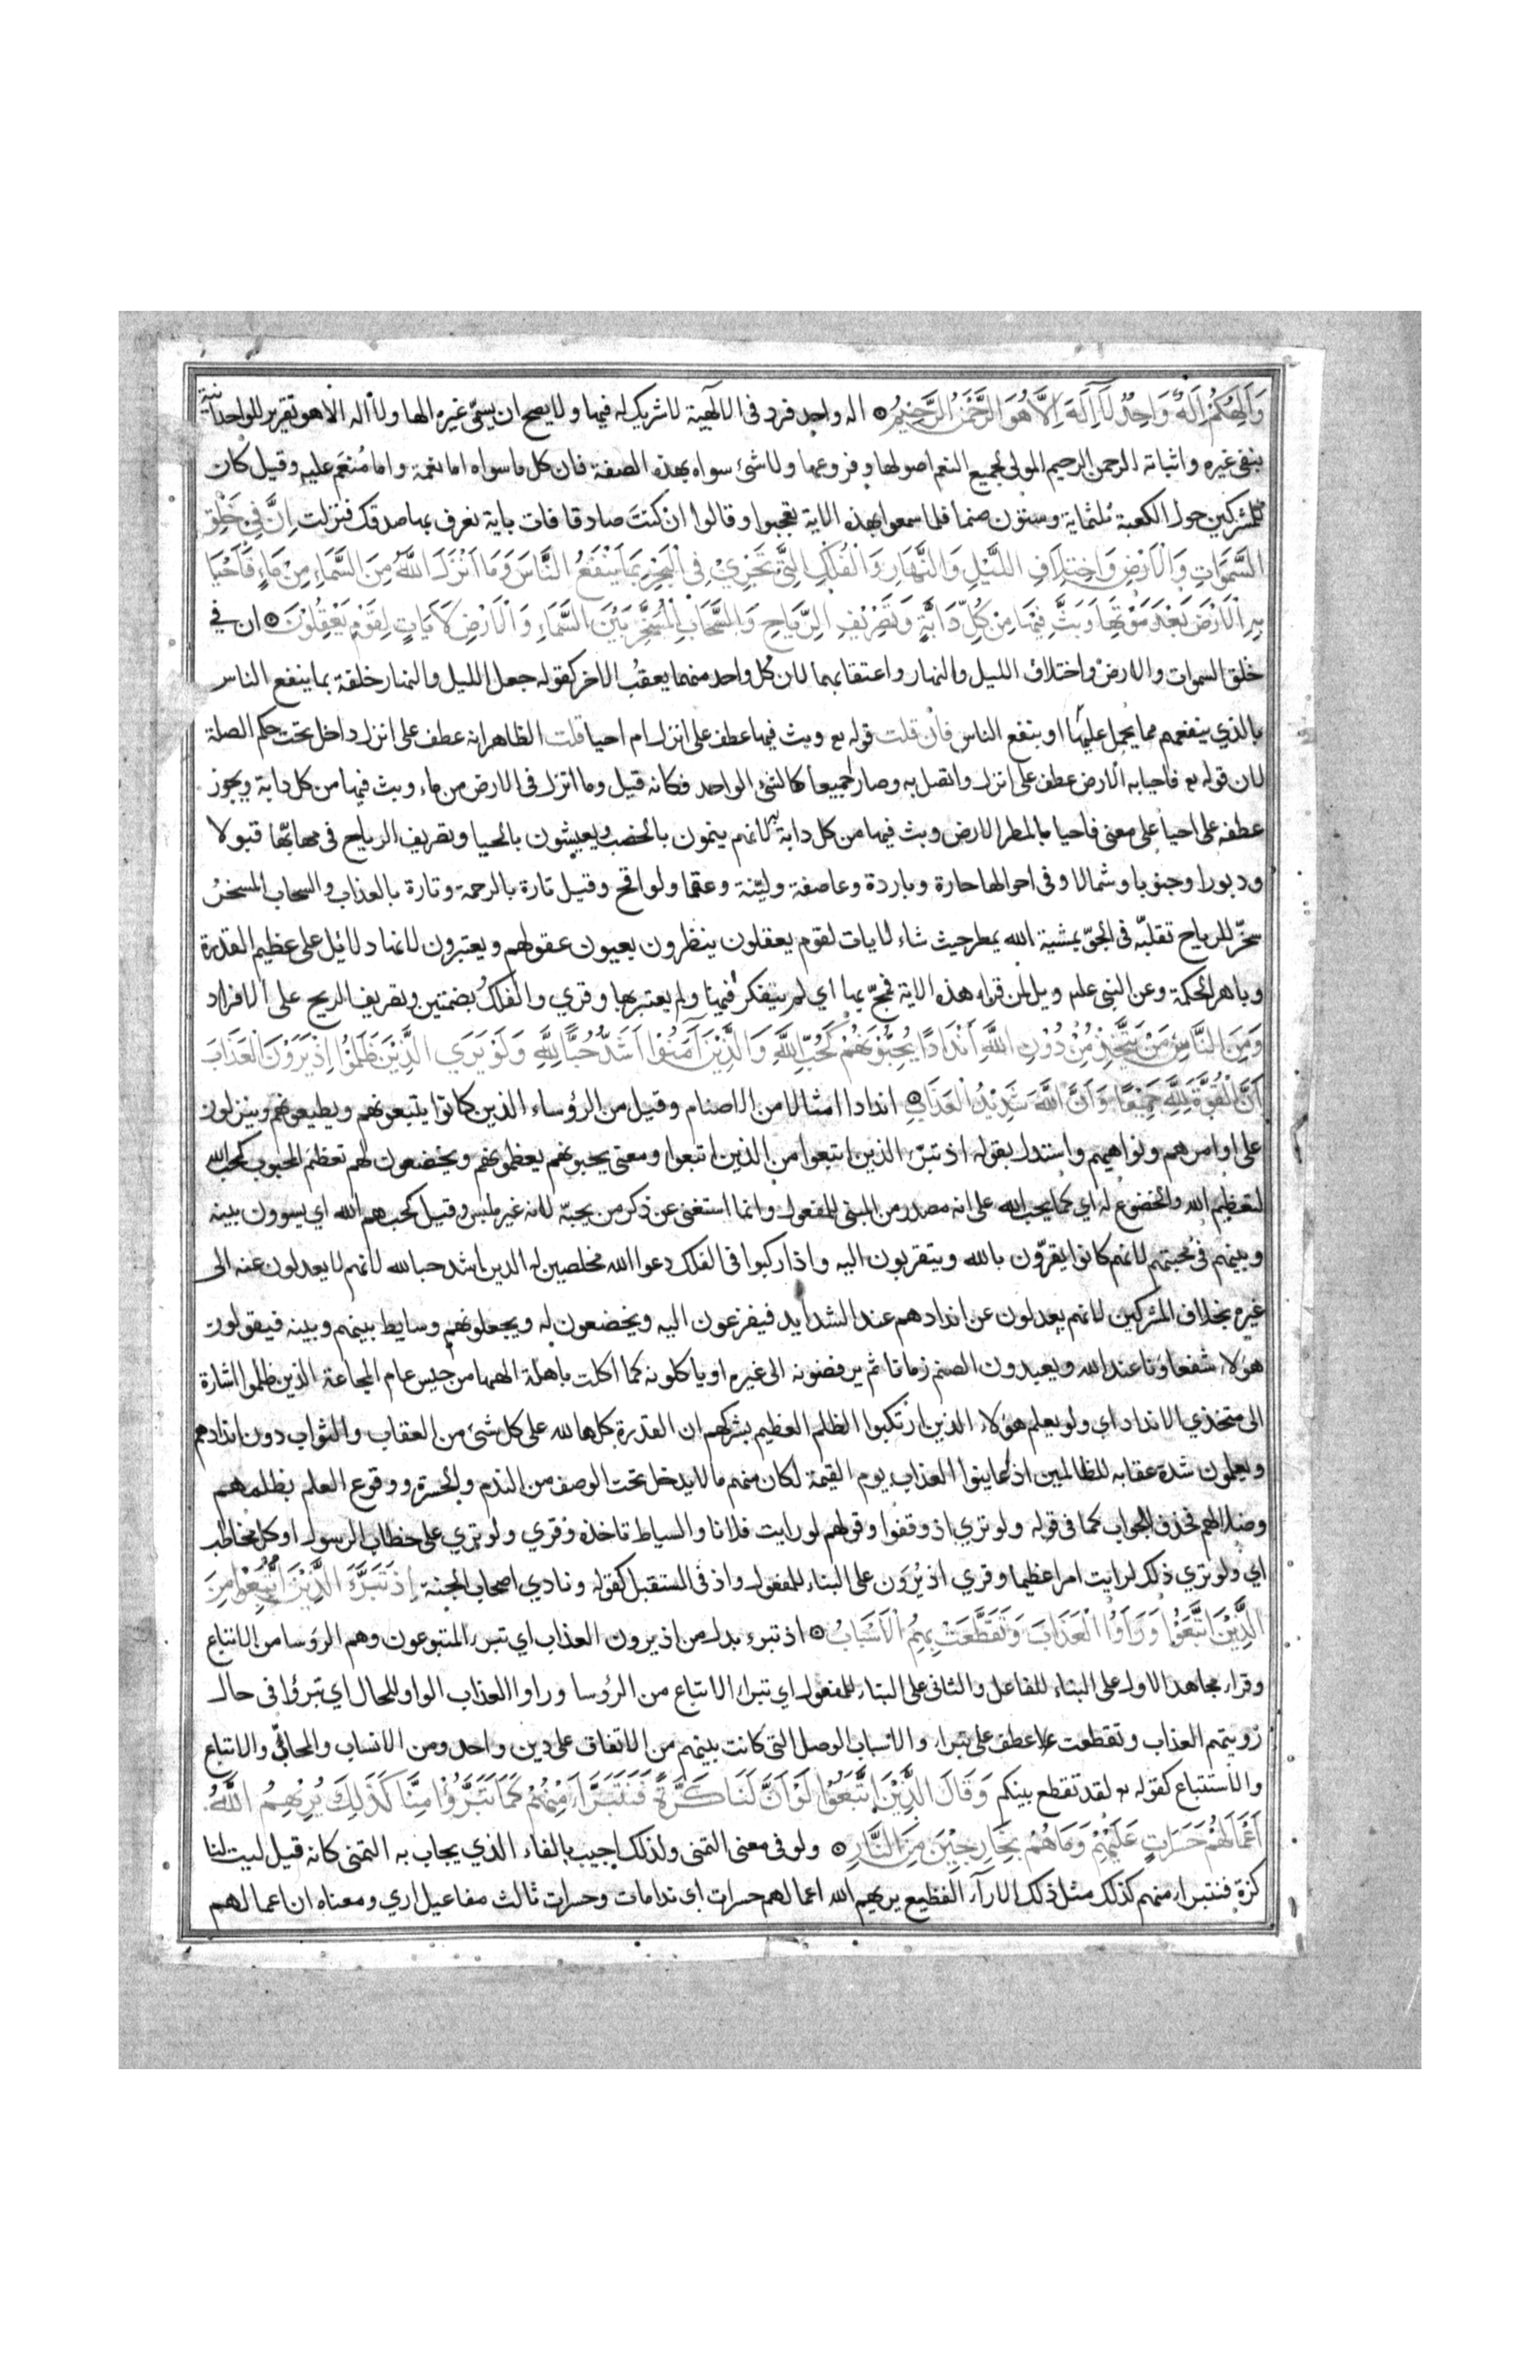 وَاِلٰهُكُمْ اِلٰهٌ وَاحِدٌ لَا اِلٰهَ اِلَّا هُوَ الرَّحْمٰنُ الرَّحِيْمُ اله واحد فرد فى الالهية لا شريك له فيها ولا يصح ان يسمّى غيره الها ولا اله الا هو تقرير للوحدانية
بنفى غيره واثباته الرحمن الرحيم المولى لجميع النعم اصولها وفروعها ولا شئ سواه بهذه الصفة فان كل ما سواه اما نعمة واما مُنعَم عليه وقيل كان
للمشركين حول الكعبة ثلثماية وستون صنما فلما سمعوا بهذه الاية تعجبوا وقالوا ان كنت صادقا فات باية نعرف بها صدقك فنزلت اِنَّ فِي خَلْقِ
السَّمٰوَاتِ وَالْاَرْضِ وَاخْتِلَافِ اللَّيْلِ وَالنَّهَارِ وَالْفُلْكِ الَّتِي تَجْرِيْ فِي الْبَحْرِ بِمَا يَنْفَعُ النَّاسَ وَمَا اَنْزَلَ اللّٰهُ مِنَ السَّمَاءِ مِنْ مَاءٍ فَاَحْيَا
بِهِ الْاَرْضَ بَعْدَ مَوْتِهَا وَبَثَّ فِيْهَا مِنْ كُلِّ دَابَّةٍ وَتَصْرِيْفِ الرِّيَاحِ وَالسَّحَابِ الْمُسَخَّرِ بَيْنَ السَّمَاءِ وَالْاَرْضِ لَاٰيَاتٍ لِقَوْمٍ يَعْقِلُوْنَ ان في
خلق السموات والارض واختلاف الليل والنهار واعتقابهما لان كل واحد منهما يعقُب الاخر كقوله جعل الليل والنهار خلفة بما ينفع الناس
بالذي ينفعهم مما يحمل عليها او بنفع الناس فان قلت قوله تع وبث فيها عطف على انزل ام احيا قلت الظاهر انه عطف على انزل داخل تحت حكم الصلة
لان قوله تع فاحيا به الارض عطف على انزل واتصل به وصار جميعا كالشئ الواحد فكانه قيل وما انزل فى الارض من ماء وبث فيها من كل دابة ويجوز
عطفه على احيا على معنى فاحيا بالمطر الارض وبث فيها من كل دابة لانهم ينمون بالخصب ويعيشون بالحيا وتصريف الرياح فى مهابّها قبولا
ودبورا وجنوبا وشمالا وفى احوالها حارة وباردة وعاصفة وليّنة وعقما ولواقح وقيل تارة بالرحمة وتارة بالعذاب والسحاب المسخر
سخّر للرياح تقلبّه فى الجوّ بمشية الله يمطر حيث شاء لايات لقوم يعقلون ينظرون بعيون عقولهم ويعتبرون لانها دلائل على عظيم القدرة
وباهر الحكمة وعن النبى علم ويل لمن قراء هذه الاية فمجّ بها اي لم يتفكر فيها ولم يعتبر بها وقري والفلك بضمتين وتصريف الريح على الافراد
وَمِنَ النَّاسِ مَنْ يَتَّخِذُ مِنْ دُوْنِ اللّٰهِ اَنْدَادًا يُحِبُّوْنَهُمْ كَحُبِّ اللّٰهِ وَالَّذِيْنَ اٰمَنُوْا اَشَدُّ حُبًّا لِلّٰهِ وَلَوْ يَرَي الَّذِيْنَ ظَلَمُوْا اِذْ يَرَوْنَ الْعَذَابَ
اَنَّ الْقُوَّةَ لِلّٰهِ جَمِيْعًا وَاَنَّ اللّٰهَ شَدِيْدُ الْعَذَابِ اندادا امثالا من الاصنام وقيل من الرؤساء الذين كانوا يتبعونهم ويطيعونهم وينزلون
على اوامرهم ونواهيهم واستدل بقوله اذ تبرّء الذين اتبعوا من الذين اتبعوا ومعنى يحبونهم يعظمونهم ويخضعون لهم تعظيم المحبوب كحب الله
لتعظيم الله والخضوع له اي كما يحب الله على انه مصدر من المبنى للمفعول وانما استغنى عن ذكر من يحبّه لانه غير ملبس وقيل كحبهم الله اي يسوون بينه
وبينهم فى محبتهم لانهم كانوا يقرّون بالله ويتقربون اليه واذا ركبوا فى الفلك دعوا الله مخلصين له الدين اشد حبا لله لانهم لا يعدلون عنه الى
غيره بخلاف المشركين لانهم يعدلون عن اندادهم عند الشدايد فيفزعون اليه ويخضعون له ويجعلونهم وسايط بينهم وبينه فيقولون
هؤلاء شفعاؤنا عند الله ويعبدون الصنم زمانا ثم يرفضونه الى غيره او ياكلونه كما اكلت باهلة الهها من حيس عام المجاعة الذين ظلموا اشارة
الى متخذي الانداد اي ولو يعلم هؤلاء الذين ارتكبوا الظلم العظيم بشركهم ان القدرة كلها لله على كل شئ من العقاب والثواب دون اندادهم
ويعلمون شدة عقابه للظالمين اذ عاينوا العذاب يوم القيمة لكان منهم ما لا يدخل تحت الوصف من الندم والحسرة ووقوع العلم بظلمهم
وضلالهم فحذف الجواب كما فى قوله ولو تري اذ وقفوا وقولهم لو رايت فلانا والسياط تاخذه وقري ولو تري على خطاب الرسول او كل مخاطب
اي ولو تري ذلك لرايت امرا عظيما وقري اذ يُرَون على البناء للمفعول واذ فى المستقبل كقوله ونادي اصحاب الجنة اِذْ تَبَرَّءَ الَّذِيْنَ اتُّبِعُوْا مِنَ
الَّذِيْنَ اتَّبَعُوْا وَرَاَوُا الْعَذَابَ وَتَقَطَّعَتْ بِهِمُ الْاَسْبَابُ اذ تبرء بدل من اذ يرون العذاب اي تبرء المتبوعون وهم الرؤسا من الاتباع
وقراء مجاهد الاول على البناء للفاعل والثانى على البناء للمفعول اي تبراء الاتباع من الرؤسا وراوا العذاب الواو للحال اي تبرؤا فى حال
رؤيتهم العذاب وتقطعت عطف على تبراء والاسباب الوصل التى كانت بينهم من الاتفاق على دين واحد ومن الانساب والمحابّ والاتباع
والاستتباع كقوله تع لقد تقطع بينكم وَقَالَ الَّذِيْنَ اتَّبَعُوْا لَوْ اَنَّ لَنَا كَرَّةً فَنَتَبَرَّاَ مِنْهُمْ كَمَا تَبَرَّؤُا مِنَّا كَذٰلِكَ يُرِيْهِمُ اللّٰهُ
اَعْمَالَهُمْ حَسَرَاتٍ عَلَيْهِمْ وَمَا هُمْ بِخَارِجِيْنَ مِنَ النَّارِ ولو فى معنى التمنى ولذلك اجيب بالفاء الذي يجاب به التمنى كانه قيل ليت لنا
كرّة فنتبراء منهم كذلك مثل ذلك الاراء الفظيع يريهم الله اعمالهم حسرات اي ندامات وحسرات ثالث مفاعيل اري ومعناه ان اعمالهم